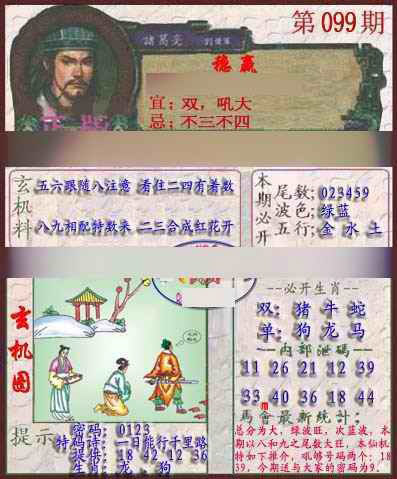 第099期
諸葛亮
稳赢
宜：双，吼大
忌：不三不四
玄机料
五六跟随八注意 看住二四有着数
八九相配特数来 二三合成红花开
本期必开
尾数：023459
波色：绿蓝
五行：金 水 土
玄机图
--必开生肖--
双：猪 牛 蛇
单：狗 龙 马
--内部泄码--
11 26 21 12 39
33 40 36 18 44
马會最新统计：
总分为大，绿波旺，次蓝波，本
期以八和九之尾数大旺，本仙机
特如下推介，吼够号码两个：18
39，今期送与大家的密码为9。
提示
密码：0123
特码诗：一日能行千里路
提供：18 42 12 36
生肖：龙、狗